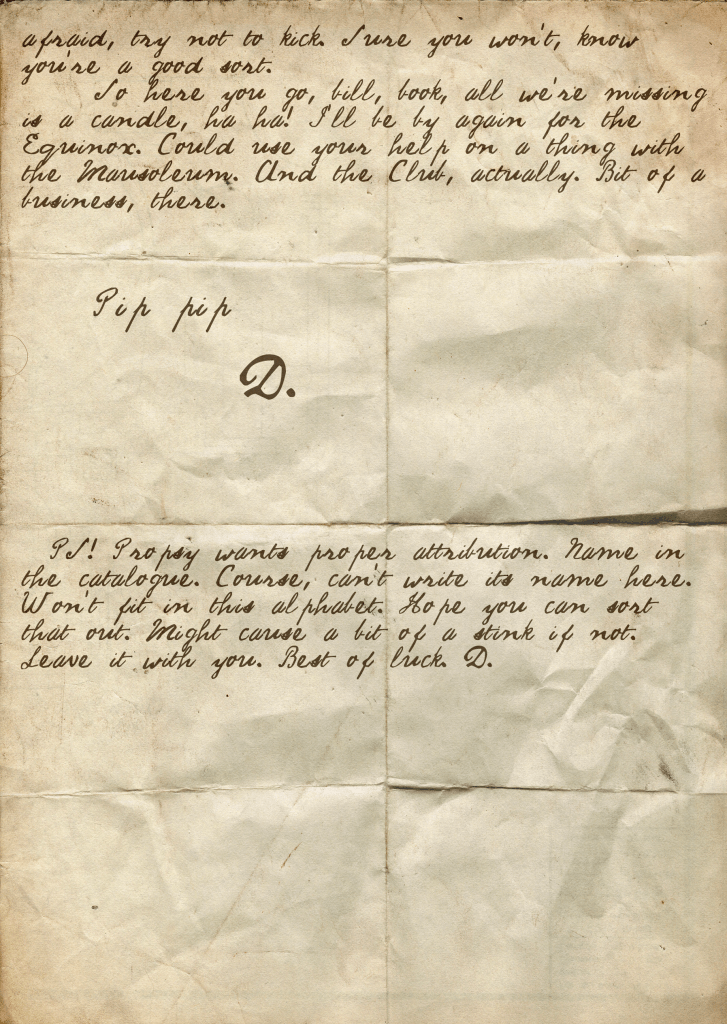 afraid, try not to kick. Sure you won't, know
you're a good sort.
So here you go, bill, book, all we're missing
is a candle, ha ha! I'll be by again for the
Equinox. Could use your help on a thing with
the Mausoleum. And the Club, actually. Bit of a
business, there.
Pip pip
D.
PS! Propsy wants proper attribution. Name in
the catalogue. Course, can't write its name here.
Won't fit in this alphabet. Hope you can sort
that out. Might cause a bit of a stink if not.
Leave it with you. Best of luck. D.